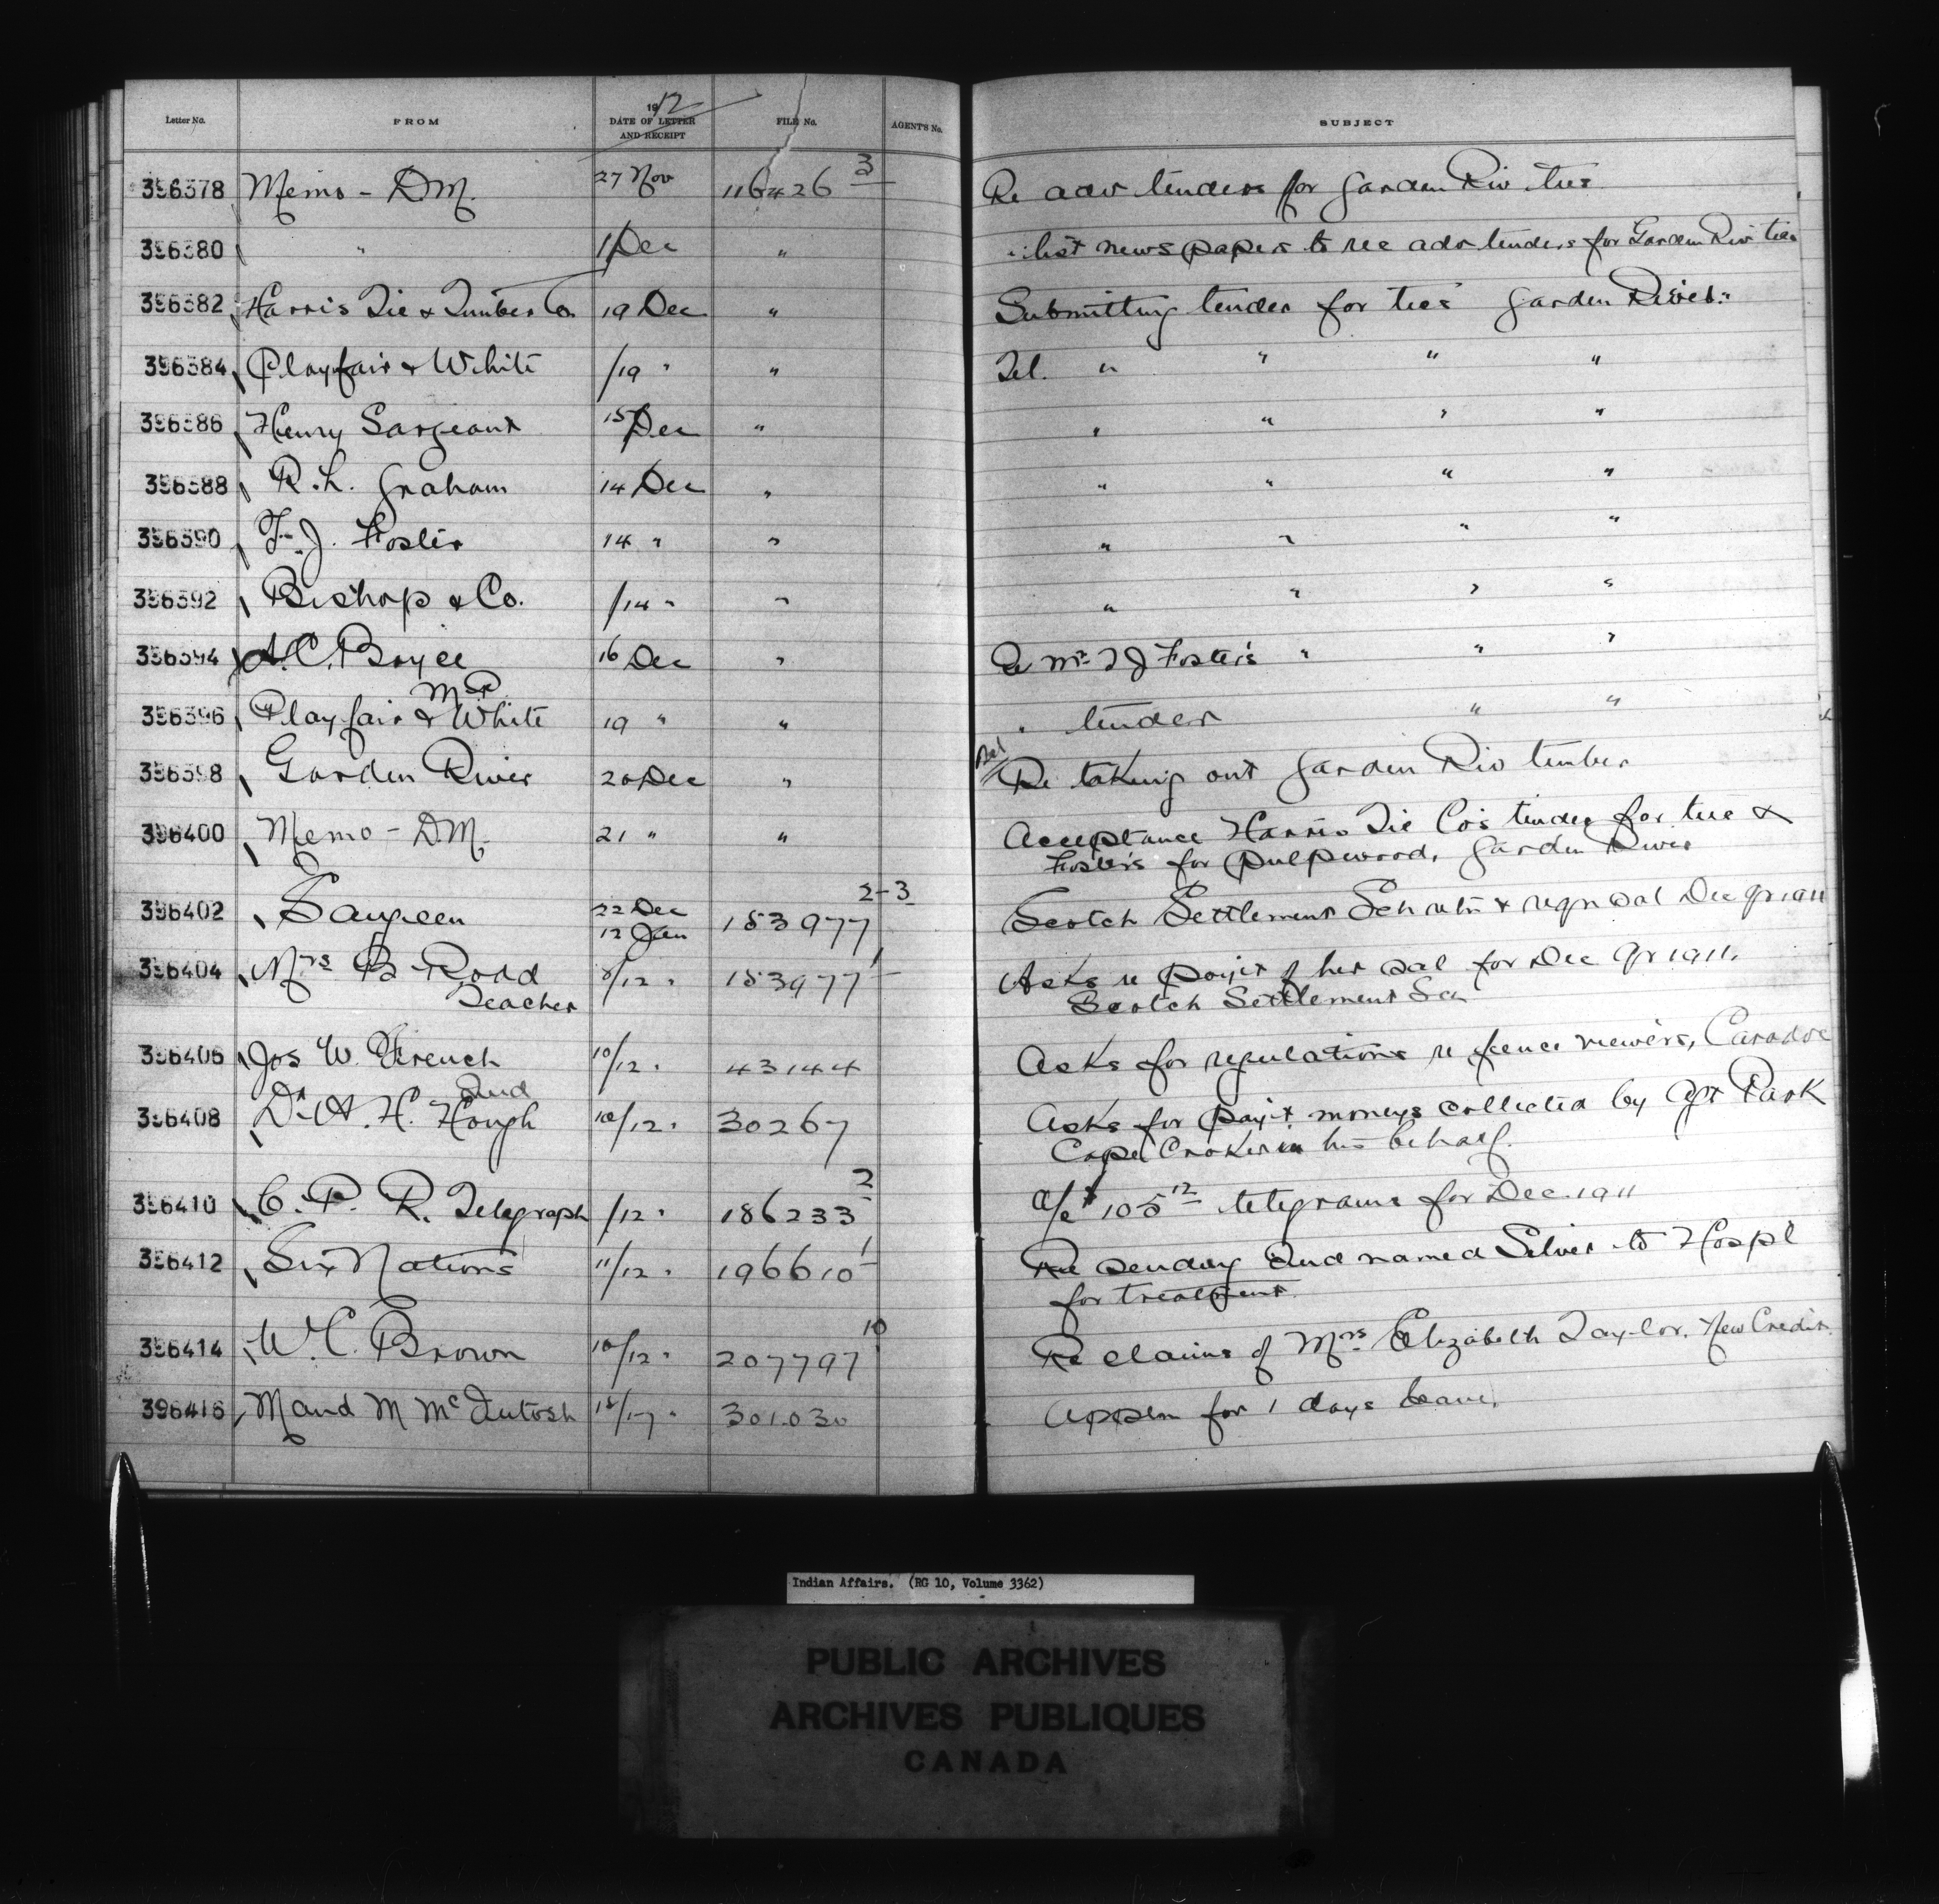 Letter No. FROM 1912 DATE OF LETTER AND RECEIPT FILE No. AGENT'S No. SUBJECT
396378 Memo - D.M. 27 Nov 116426 3 Re adv tenders for Garden Riv ties
396380 " 1/Dec " " list newspapers to rec adv tenders for Garden Riv ties
396382 Harris Tie & Timber Co. 19 Dec " Submitting tender for ties Garden River
396384 Playfair & White /19 " " Tel. " " " "
396386 Henry Sargeant 15/Dec " " " " "
396388 R.L. Graham 14 Dec " " " " "
396390 F.J. Foster 14 " " " " " "
396392 Bishop & Co. /14 " " " " " "
396394 A.C. Boyce M.P. 16 Dec " Re Mr F J Foster's " " "
396396 Playfair & White 19 " " " tender " "
396398 Garden River 20 Dec " Re taking out Garden Riv timber
396400 Memo - D.M. 21 " " Acceptance Harris Tie Co's tender for ties &
Foster's for pulpwood, Garden River
396402 Saugeen 22 Dec 12 Jan 153977 2-3 Scotch Settlement Sch retn & reqn sal Dec qr 1911
396404 Mrs B Rodd Teacher 8/12 " 153977 1 Asks re payt of her sal for Dec Qr 1911.
Scotch Settlement Sch
396406 Jos W. French 10/12 " 43144 Asks for regulations re fence viewers, Caradoc
Ind
396408 Dr A. H. Hough 10/12 " 30267 Asks for payt moneys collected by Agt Park
Cape Croker in his behalf.
396410 C. P. R. Telegraph /12 " 186233 2 a/c $105 12 telegrams for Dec. 1911
396412 Six Nations 11/12 " 196610 1 Re sending Ind named Silver to Hospl
for treatment
396414 W. C. Brown 10/12 " 207797 10 Re claims of Mrs Elizabeth Taylor. New Credit
396416 Maud M McIntosh 301030 Appln for 1 days leave.
Indian Affairs. (RG 10, Volume 3362)
PUBLIC ARCHIVES
ARCHIVES PUBLIQUES
CANADA